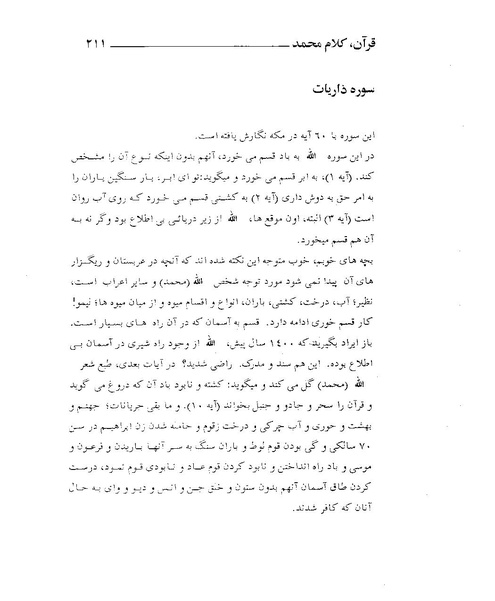 قرآن، کلام محمد ــــــــــــــــ ۲۱۱
سوره ذاریات
این سوره با ۶۰ آیه در مکه نگارش یافته است.
در این سوره الله به باد قسم می خورد، آنهم بدون اینکه نوع آن را مشخص
کند. (آیه ۱)، به ابر قسم می خورد و میگوید: تو ای ابر، بار سنگین باران را
به امر حق به دوش داری (آیه ۲) به کشتی قسم می خورد که روی آب روان
است (آیه ۳) البته، اون موقع ها، الله از زیر دریائی بی اطلاع بود وگر نه به
آن هم قسم میخورد.
بچه های خوبم، خوب متوجه این نکته شده اند که آنچه در عربستان و ریگزار
های آن پیدا نمی شود مورد توجه شخص الله (محمد) و سایر اعراب است،
نظیر؛ آب، درخت، کشتی، باران، انواع و اقسام میوه و از میان میوه ها؛ لیمو!
کار قسم خوری ادامه دارد. قسم به آسمان که در آن راه های بسیار است.
باز ایراد بگیرید که ۱۴۰۰ سال پیش، الله از وجود راه شیری در آسمان بی
اطلاع بوده. این هم سند و مدرک. راضی شدید؟ در آیات بعدی، طبع شعر
الله (محمد) گل می کند و میگوید: کشته و نابود باد آن که دروغ می گوید
و قرآن را سحر و جادو و جنبل بخواند (آیه ۱۰). و ما بقی جریانات؛ جهنم و
بهشت و حوری و آب چرکی و درخت زقوم و حامله شدن زن ابراهیم در سن
۷۰ سالگی و گی بودن قوم لوط و باران سنگ به سر آنها باریدن و فرعون و
موسی و باد راه انداختن و نابود کردن قوم عاد و نابودی قوم ثمود، درست
کردن طاق آسمان آنهم بدون ستون و خلق جن و انس و دیو و وای به حال
آنان که کافر شدند.